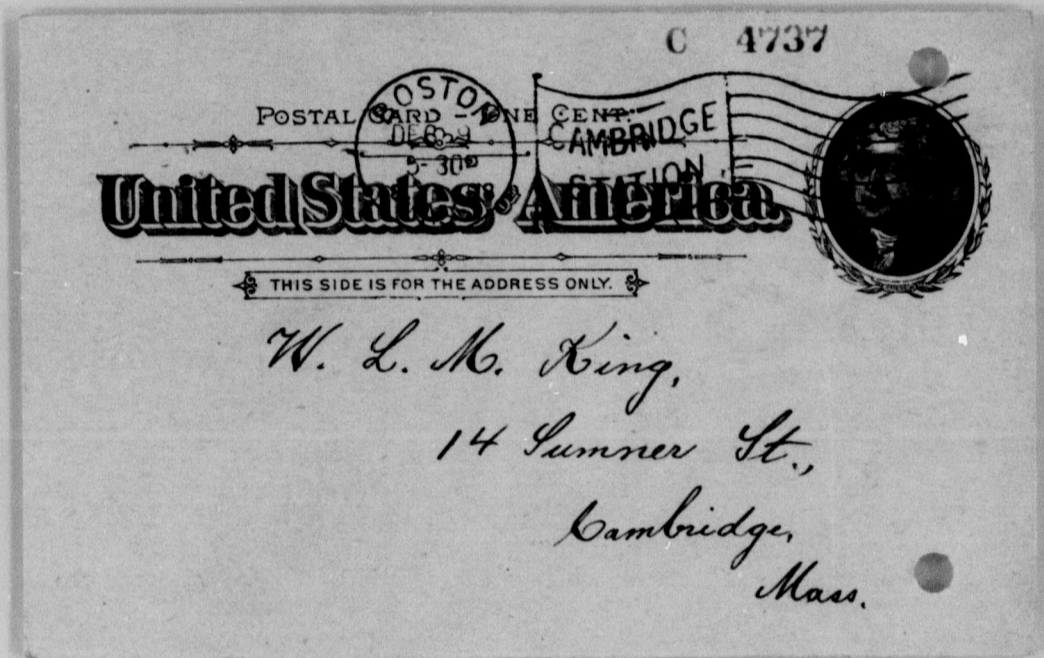 C 4737
POSTAL CARD – ONE CENT.
BOSTON
5-30P
CAMBRIDGE
STATION
United States of America.
THIS SIDE IS FOR THE ADDRESS ONLY.
W. L. M. King,
14 Sumner St.,
Cambridge,
Mass.